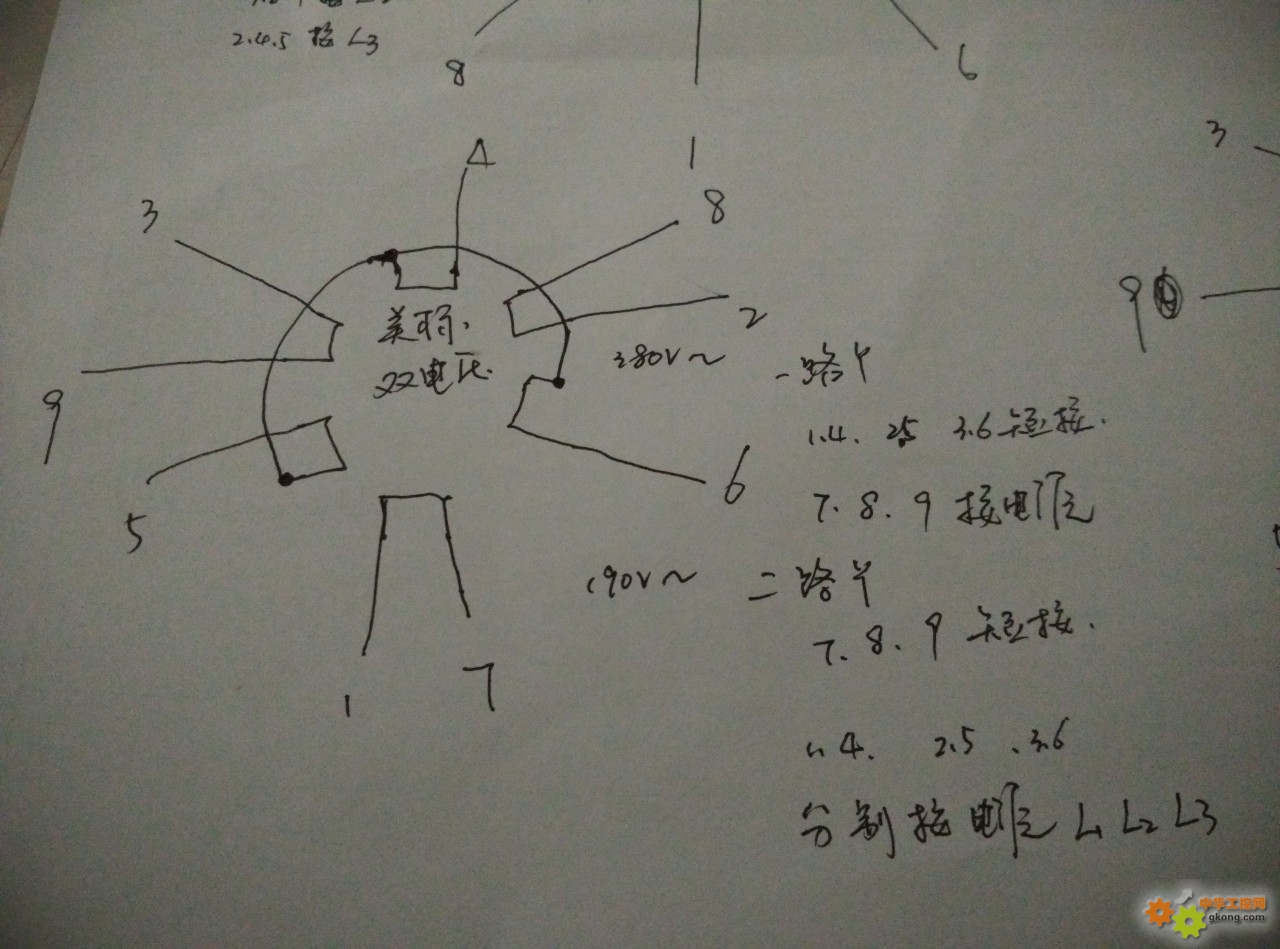 2.4.5 接 L3
8
1
6
4
3
8
3
美标.
双电压.
2
9
9
380V～
一路Y
1.4. 2.5 3.6 短接.
5
6
7. 8. 9 接电源
190V～
二路Y
7. 8. 9 短接.
1
7
1. 4. 2.5 . 3.6
分别接电源 L1 L2 L3
中华工控网
gkong.com